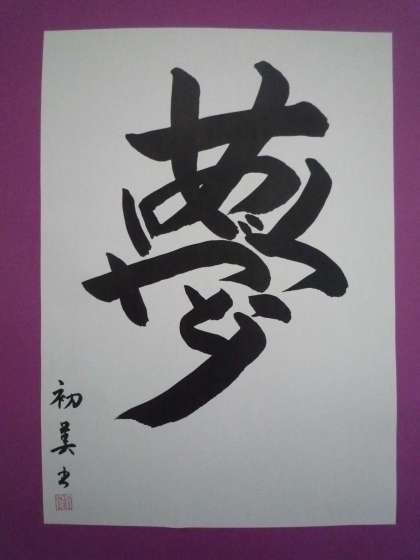 夢
初美書